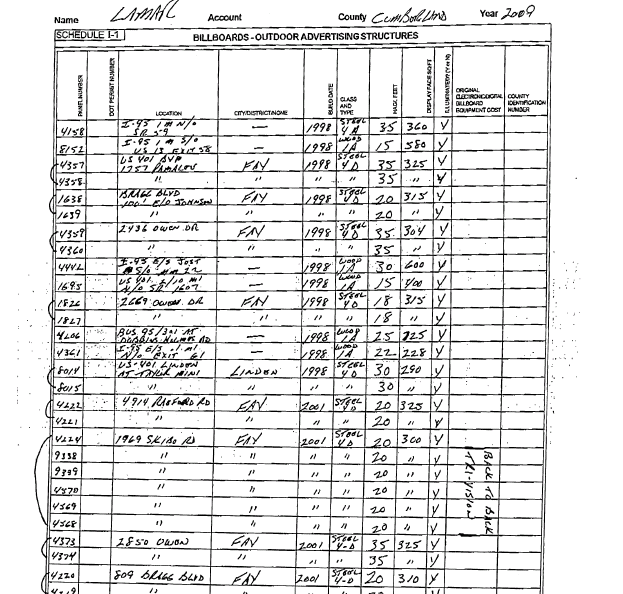 Name LAMAR Account County CUMBERLAND Year 2009
SCHEDULE I-1 BILLBOARDS - OUTDOOR ADVERTISING STRUCTURES
PANEL NUMBER DOT PERMIT NUMBER LOCATION CITY/DISTRICT/NOME BUILD DATE CLASS AND TYPE HAGL FEET DISPLAY FACE SQ FT ILLUMINATED (Y or N) ORIGINAL ELECTRONIC/DIGITAL BILLBOARD EQUIPMENT COST COUNTY IDENTIFICATION NUMBER
4158 I-95 1 M N/O SR 59 — 1998 STEEL 4A 35 360 Y
8152 I-95 1 M S/O US 13 EXIT 58 — 1998 WOOD 1A 15 580 Y
4357 US 401 BYP 1757 PAMALEE FAY 1998 STEEL 4D 35 325 Y
4358 " " " " 35 " Y
1638 BRAGG BLVD 100' E/O JOHNSON FAY 1998 STEEL 4D 20 315 Y
1639 " " " " 20 " Y
4359 2436 OWEN DR FAY 1998 STEEL 4D 35 304 Y
4360 " " " " 35 " Y
4442 I-95 E/S JUST S/O MM 22 — 1998 WOOD 1A 30 600 Y
1695 US 401 E/10 MI N/O SR 1607 — 1998 WOOD 1A 15 400 Y
1826 2669 OWEN DR FAY 1998 STEEL 4D 18 315 Y
1827 " " " " 18 " Y
4206 BUS 95/301 AT DOBBINS HOLMES RD — 1998 WOOD 1A 25 225 Y
4361 I-95 E/S .1 MI N/O EXIT 61 — 1998 WOOD 1A 22 228 Y
8014 US-401 LINDEN AT TAYLOR MINI LINDEN 1998 STEEL 4D 30 290 Y
8015 " " " " 30 " Y
4222 4914 RAEFORD RD FAY 2001 STEEL 4D 20 325 Y
4221 " " " " 20 " Y
4224 1969 SKIBO RD FAY 2001 STEEL 4D 20 300 Y
9338 " " " " 20 " Y
9339 " " " " 20 " Y
4570 " " " " 20 " Y
4569 " " " " 20 " Y
4568 " " " " 20 " Y
BACK TO BACK
TRI-VISION
4373 2850 OWEN FAY 2001 STEEL 4-D 35 325 Y
4374 " " " " 35 " Y
4220 809 BRAGG BLVD FAY 2001 STEEL 4-D 20 310 Y